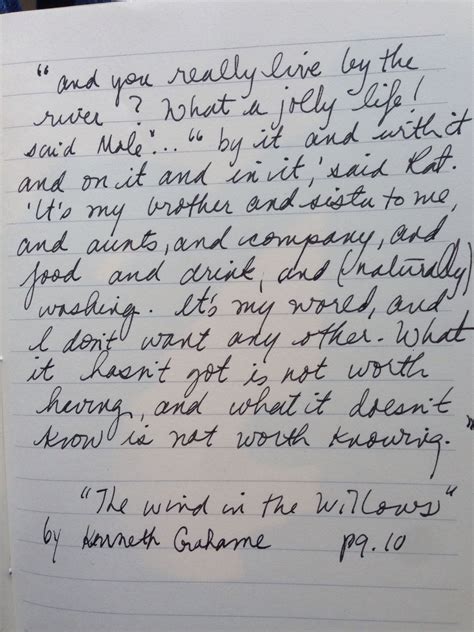 “and you really live by the
river? What a jolly life!
said Mole"... “by it and with it
and on it and in it,' said Rat.
'It's my brother and sister to me,
and aunts, and company, and
food and drink, and (naturally)
washing. It's my world, and
I don't want any other. What
it hasn't got is not worth
having, and what it doesn't
know is not worth knowing."
"The wind in the Willows"
by Kenneth Grahame pg.10